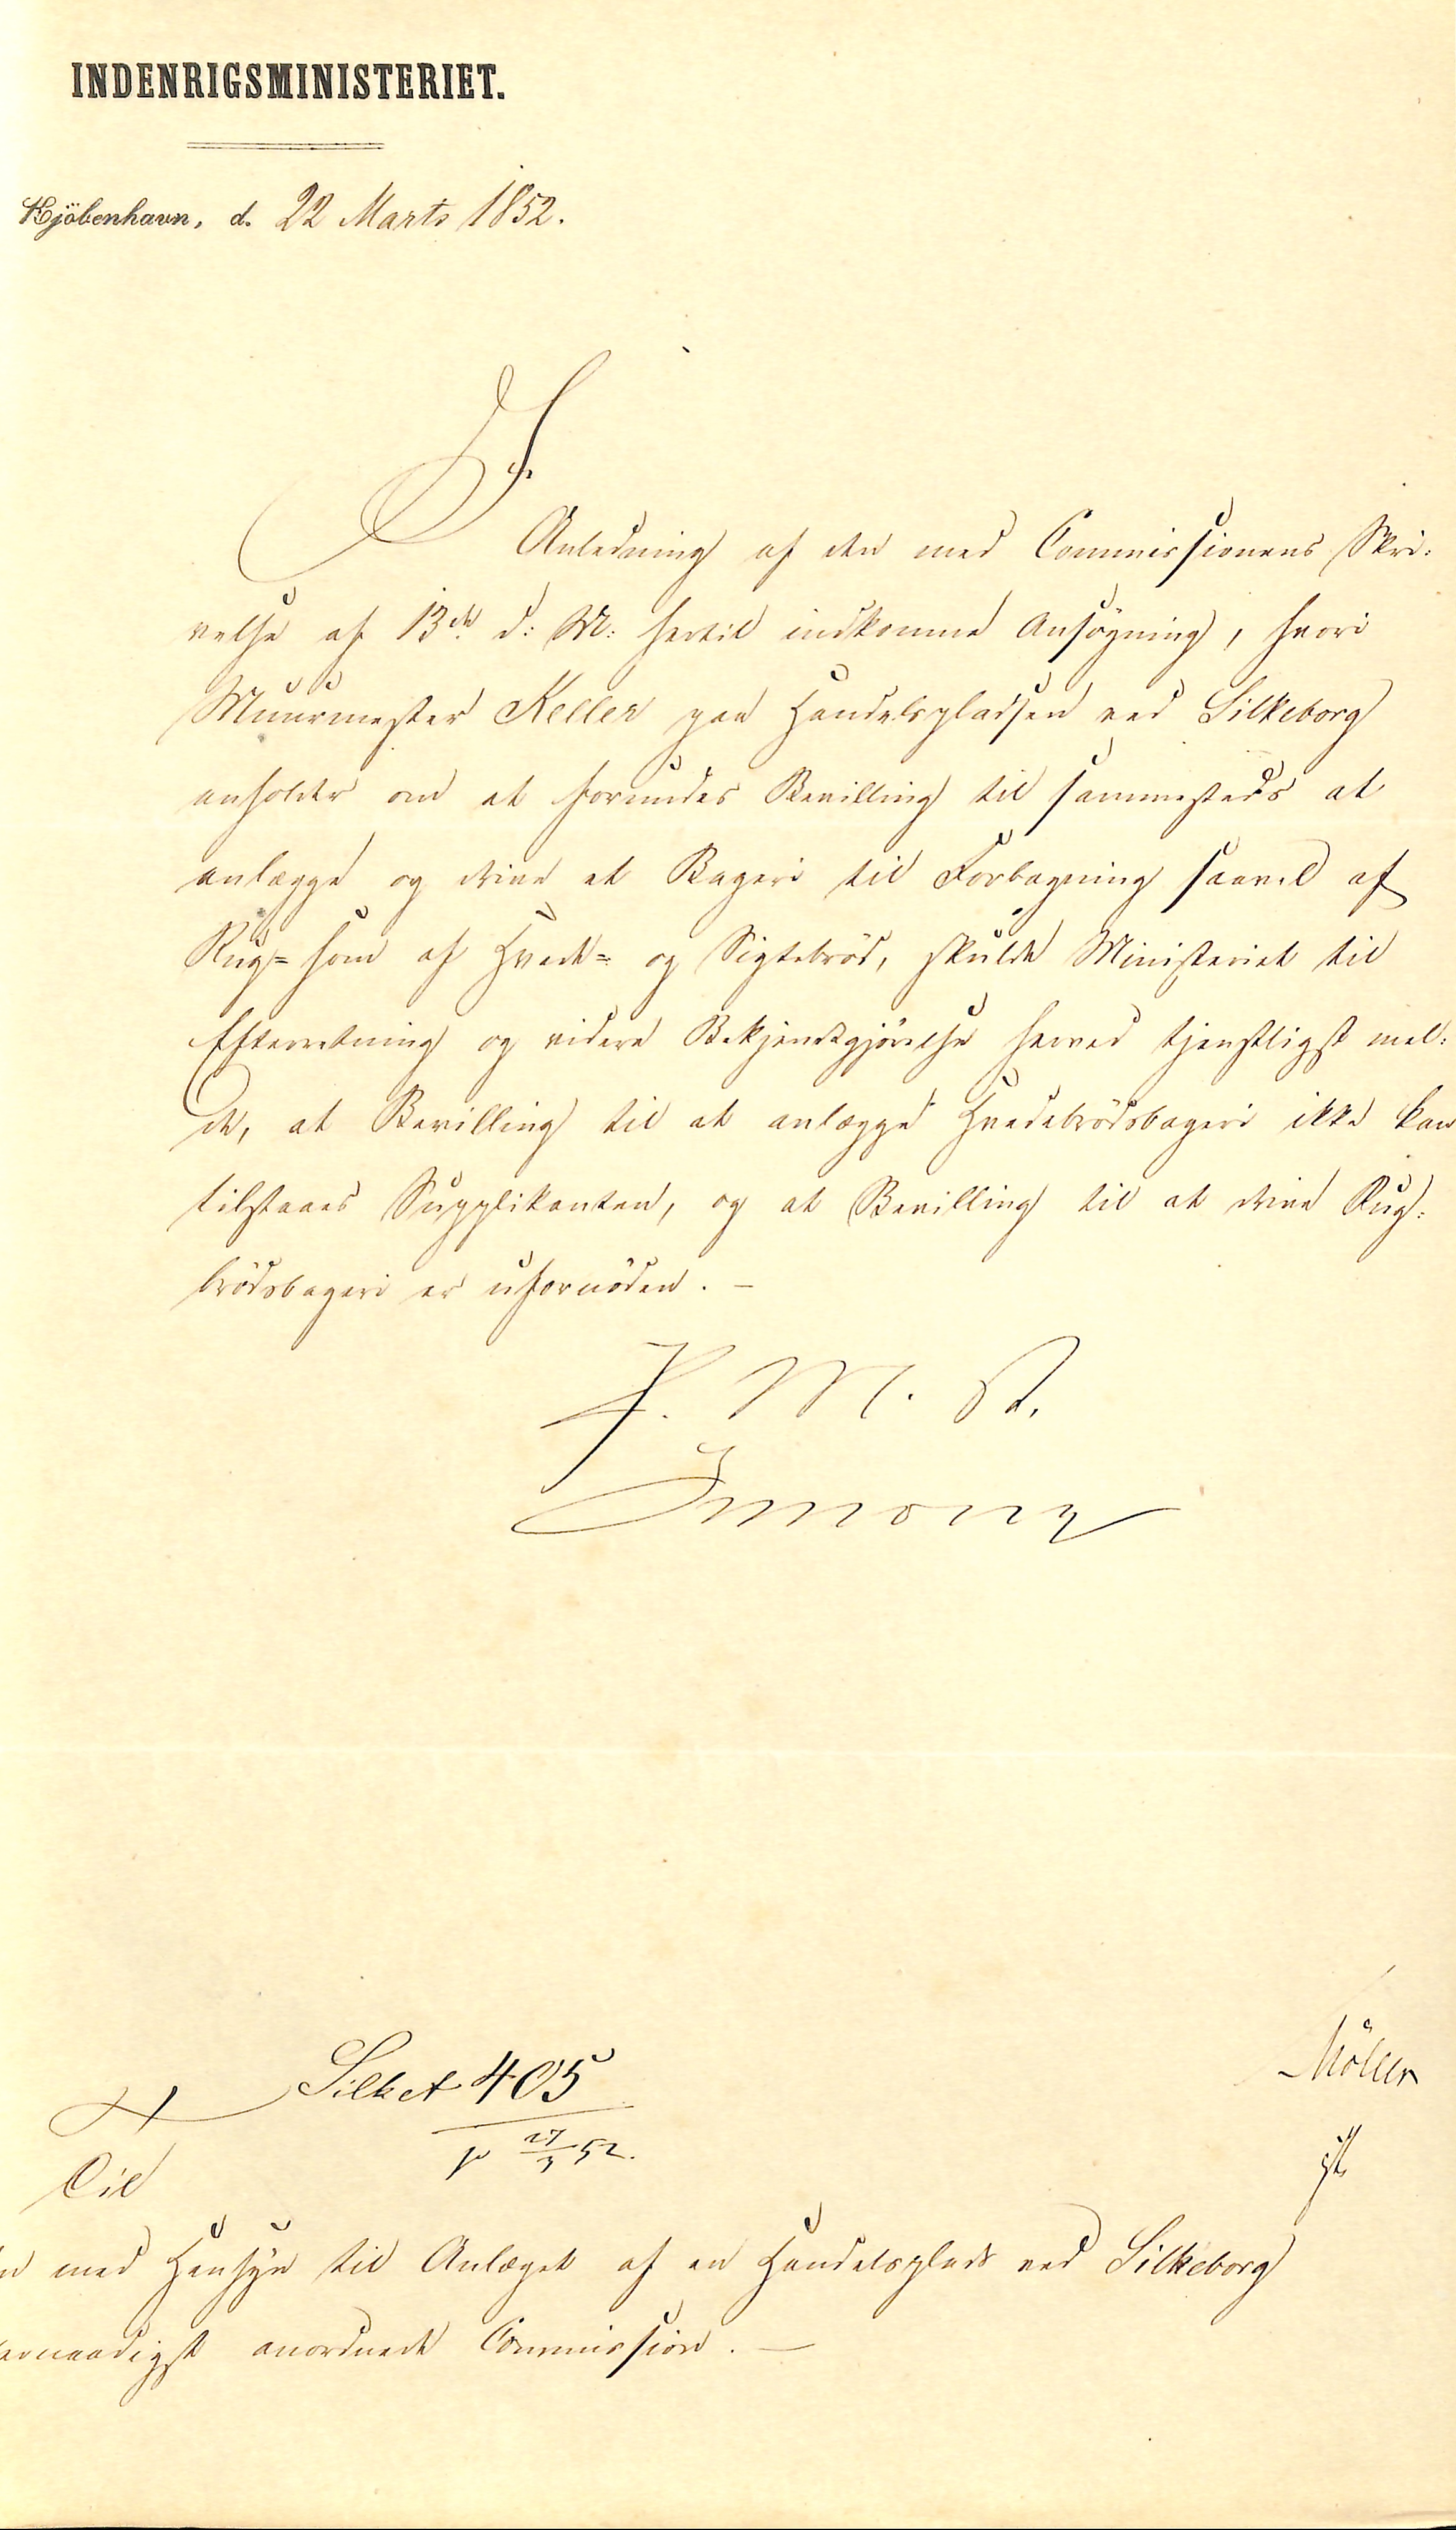 INDENRIGSMINISTERIET.
Kjöbenhavn, d. 22 Marts 1852.
I
Anledning af den med Commissionens Skri-
velse af 13de d: M: hertil indkomne Ansøgning, hvori
Muurmester Keller paa Handelspladsen ved Silkeborg
anholder om at forundes Bevilling til sammesteds at
anlægge og drive et Bageri til Forbagning saavel af
Rug= som af Hvede= og Sigtebröd, skulde Ministeriet til
Efterretning og videre Bekjendtgjörelse herved tjenstligst mel-
de, at Bevilling til at anlægge Hvedebrödsbageri ikke kan
tilstaaes Supplikanten, og at Bevilling til at drive Rug-
brödsbageri er ufornöden. —
F. M. A.
Simony
Silk A 405
27/3 52.
Möller
Til
med Hensyn til Anlæget af en Handelsplads ved Silkeborg
ernaadigst anordnede Commission. —